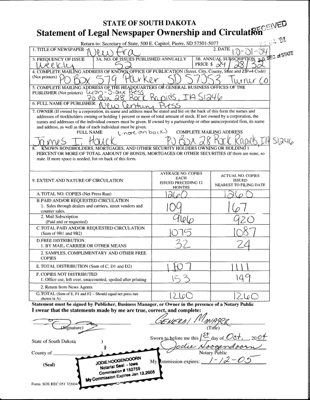 STATE OF SOUTH DAKOTA
Statement of Legal Newspaper Ownership and Circulation
RECEIVED
Return to: Secretary of State, 500 E. Capitol, Pierre, SD 57501-5077
1. TITLE OF NEWSPAPER New Era 2. DATE 10-21-04
3. FREQUENCY OF ISSUE Weekly 3A. NO. OF ISSUES PUBLISHED ANNUALLY 52 3B. ANNUAL SUBSCRIPTION PRICE $ 24/28/32
4. COMPLETE MAILING ADDRESS OF KNOWN OFFICE OF PUBLICATION (Street, City, County, State and ZIP+4 Code) (Not printers)
PO Box 579 Parker SD 57053 Turner Co
5. COMPLETE MAILING ADDRESS OF THE HEADQUARTERS OR GENERAL BUSINESS OFFICES OF THE
PO Box 28 Rock Rapids, IA 51246
6. FULL NAME OF PUBLISHER: New Century Press
7. OWNER (If owned by a corporation, its name and address must be stated and also on the back of this form the names and
addresses of stockholders owning or holding 1 percent or more of total amount of stock. If not owned by a corporation, the
names and addresses of the individual owners must be given. If owned by a partnership or other unincorporated firm, its name
and address, as well as that of each individual must be given.
FULL NAME (not on back) COMPLETE MAILING ADDRESS
James I. Hauck PO Box 28 Rock Rapids, IA 51246
8. KNOWN BONDHOLDERS, MORTGAGES, AND OTHER SECURITY HOLDERS OWNING OR HOLDING 1
PERCENT OR MORE OF TOTAL AMOUNT OF BONDS, MORTGAGES OR OTHER SECURITIES (If there are none, so
state. If more space is needed, list on back of this form.
9. EXTENT AND NATURE OF CIRCULATION
AVERAGE NO. COPIES EACH ISSUED PRECEDING 12 MONTHS
ACTUAL NO. COPIES ISSUED NEAREST TO FILING DATE
A. TOTAL NO. COPIES (Net Press Run) 1260 1260
B. PAID AND/OR REQUESTED CIRCULATION
1. Sales through dealers and carriers, street vendors and counter sales. 109 167
2. Mail Subscription (Paid and or requested) 966 920
C. TOTAL PAID AND/OR REQUESTED CIRCULATION (Sum of 9B1 and 9B2) 1075 1087
D. FREE DISTRIBUTION
1. BY MAIL, CARRIER OR OTHER MEANS 32 24
2. SAMPLES, COMPLIMENTARY AND OTHER FREE COPIES
E. TOTAL DISTRIBUTION (Sum of C, D1 and D2) 1107 1111
F. COPIES NOT DISTRIBUTED
1. Office use, left over, unaccounted, spoiled after printing 153 149
2. Return from News Agents
G. TOTAL (Sum of E, F1 and F2 - Should equal net press run shown in A) 1260 1260
Statement must be signed by Publisher, Business Manager, or Owner in the presence of a Notary Public
I swear that the statements made by me are true, correct, and complete:
General Manager
(Signature) (Title)
State of South Dakota )
Sworn to before me this 21st day of Oct. 2004
County of )
Jodie Hoogendoorn
Notary Public
(Seal)
JODIE HOOGENDOORN
Notarial Seal - Iowa
Commission # 152759
My Commission Expires Jan 12, 2005
My Commission expires: 1-12-05